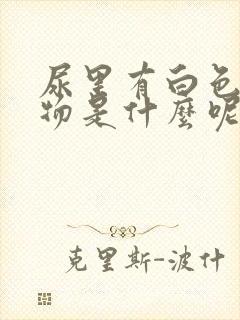 尿里有白色
物是什麼呢
克里斯-波什